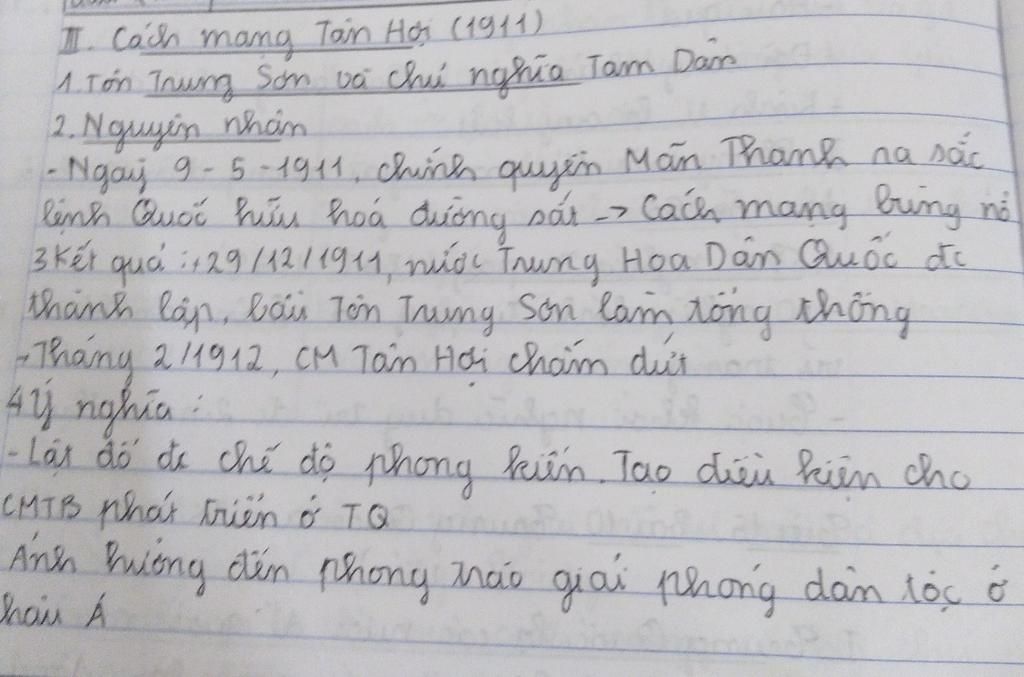 III. Cách mạng Tân Hợi (1911)
1. Tôn Trung Sơn và chủ nghĩa Tam Dân
2. Nguyên nhân
- Ngày 9-5-1911, chính quyền Mãn Thanh na sắc
lệnh Quốc hữu hoá đường sắt -> Cách mạng bùng nổ
3 Kết quả : + 29/12/1911, nước Trung Hoa Dân Quốc đc
thành lập, bầu Tôn Trung Sơn làm tổng thống
- Tháng 2/1912, CM Tân Hợi chấm dứt
4 Ý nghĩa :
- Lật đổ đc chế độ phong kiến. Tạo điều kiện cho
CMTB phát triển ở TQ
Ảnh hưởng đến phong trào giải phóng dân tộc ở
hâu Á